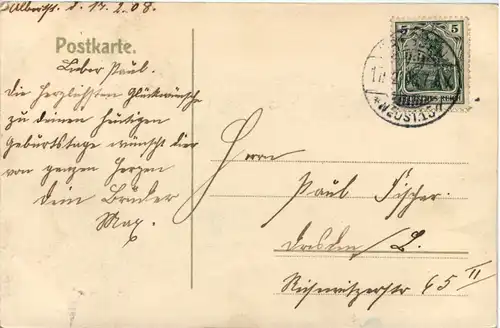 Albertst. d. 17.2.08.
Postkarte.
Lieber Paul.
Die Herzlichsten Glückwünsche
zu deinen heutigen
Geburtstage wünscht dir
von ganzem Herzen
dein Brüder
Max.
5 5
Herrn
Paul Fischer
Dresden
65 II